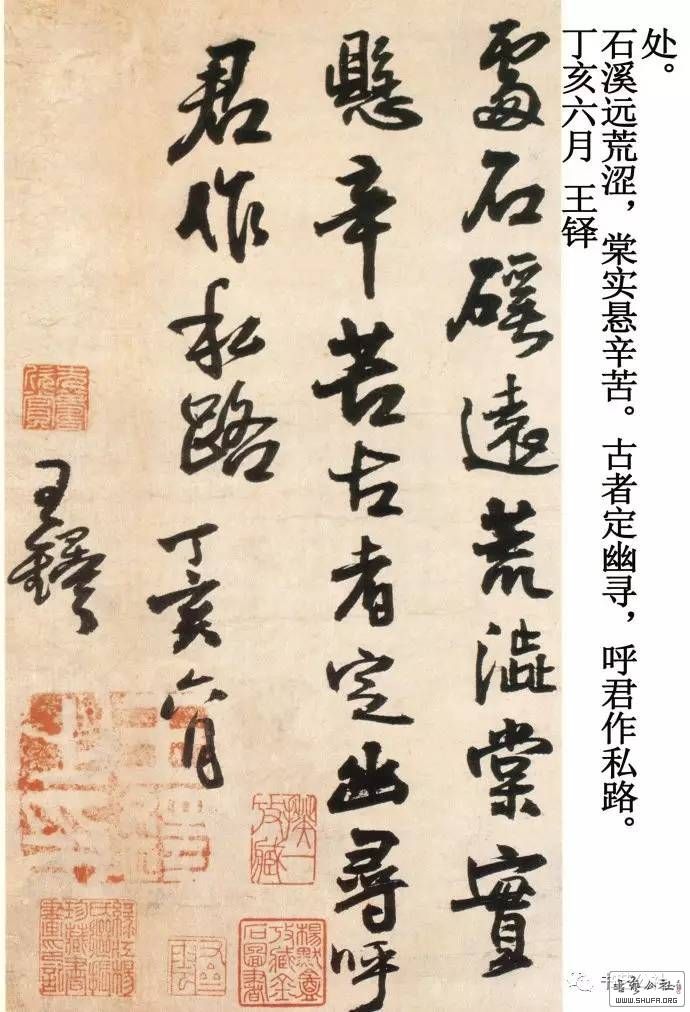 处。
石溪远荒涩，棠实悬辛苦。古者定幽寻，呼君作私路。
丁亥六月 王铎
處石磎遠荒澁棠實
懸辛苦古者定幽尋呼
君作私路
丁亥六月
王鐸
书艺公社
WWW.SHUFA.ORG